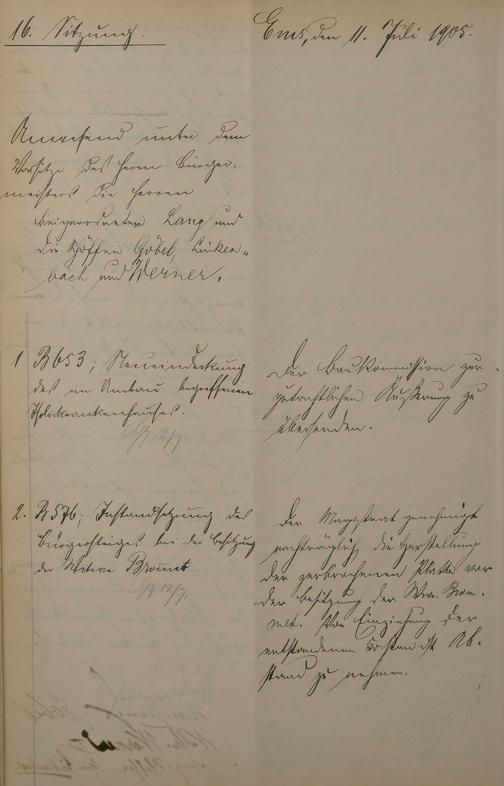 16. Sitzung.
Ems, den 11. Juli 1905.
Anwesend unter dem
Vorsitze des Herrn Bürger-
meisters die Herren
Beigeordneter Lang und
die Schöffen Göbel, Linken-
bach und Werner.
1 B 653; Neueindeckung
des im Umbau begriffenen
Isolirkrankenhauses.
Der Baukommission zur
gutachtlichen Äußerung zu
übersenden.
2. B 576; Instandsetzung des
Bürgersteiges bei der Besitzung
der Witwe
Der Magistrat genehmigt
nachträglich die Herstellung
der zerbrochenen Platte vor
der Besitzung der Wwe.
Von Einziehung der
entstandenen Kosten ist Ab-
stand zu nehmen.